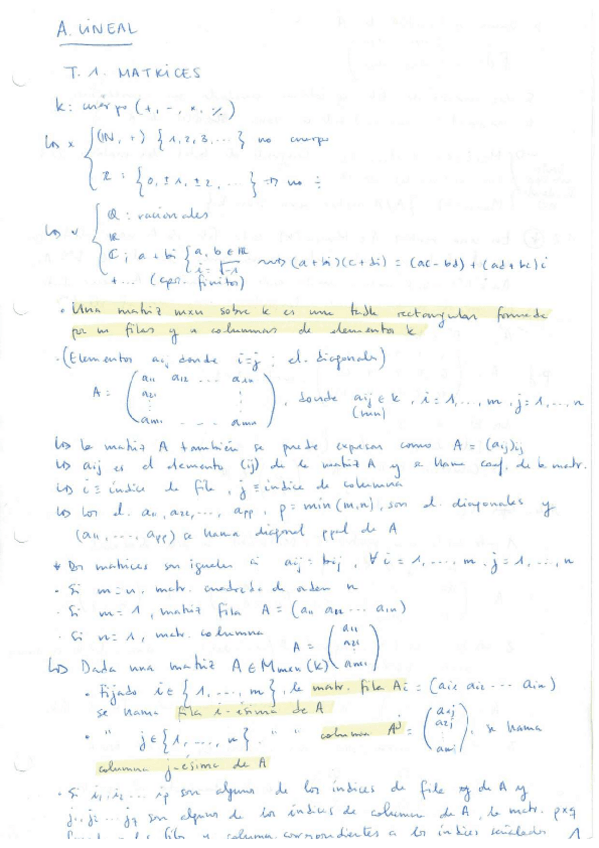 A. LINEAL
T. 1. MATRICES
k: cuerpo (+, -, ×, ÷)
↳ × { (ℕ, +) {1, 2, 3, ...} no cuerpo
ℤ : {0, ±1, ±2, ...} → no ÷
↳ v { ℚ : racionales
ℝ
ℂ ; a + bi { a, b ∈ ℝ
i = √-1 ⇝ (a+bi)(c+di) = (ac-bd) + (ad+bc)i
+ ... (finitos)
• Una matriz mxn sobre k es una tabla rectangular formada
por m filas y n columnas de elementos k
• (Elementos aij donde i=j : el. diagonales)
A = ( a11 a12 ... a1n
a21
⋮
am1 ... amn ) , donde aij ∈ k , i = 1, ..., m , j = 1, ..., n
(mxn)
↳ la matriz A también se puede expresar como A = (aij)ij
↳ aij es el elemento (ij) de la matriz A y se llama coef. de la matr.
↳ i ≡ índice de fila , j ≡ índice de columna
↳ los el. a11, a22, ..., app , p = min(m,n), son el. diagonales y
(a11, ..., app) se llama diagonal ppal de A
* Dos matrices son iguales si aij = bij , ∀ i = 1, ..., m , j = 1, ..., n
• Si m=n, matr. cuadrada de orden n
• Si m = 1, matriz fila A = (a11 a12 ... a1n)
• Si n = 1, matr. columna A = ( a11
a21
⋮
am1 )
↳ Dada una matriz A ∈ Mmxn(k)
• Fijado i ∈ {1, ..., m}, la matr. fila Ai = (ai1 ai2 ... ain)
se llama fila i-ésima de A
• " j ∈ {1, ..., n} . " " columna Aj = ( a1j
a2j
⋮
amj ) , se llama
columna j-ésima de A
• Si i1, i2 ... ip son algunos de los índices de fila de A y
j1, j2 ... jq son algunos de los índices de columna de A, la matr. pxq
filas y columnas correspondientes a los índices señalados 1